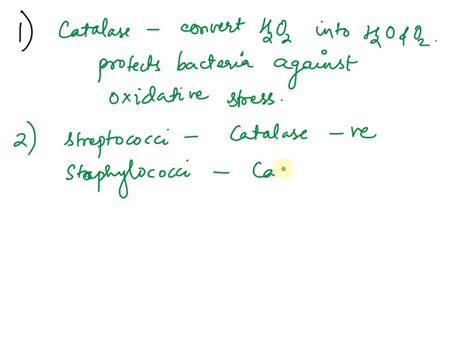 1) Catalase – convert H₂O₂ into H₂O & O₂.
protects bacteria against
oxidative stress.
2) Streptococci – Catalase –ve
Staphylococci – Ca